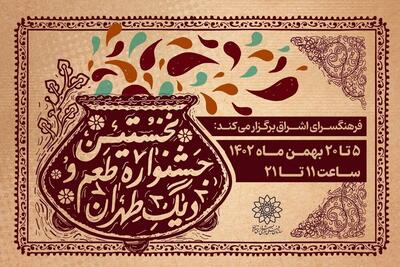 نخستین
جشنواره طعم و
دیگ طهران
فرهنگسرای اشراق برگزار می‌کند:
۵ تا ۲۰ بهمن ماه ۱۴۰۲
ساعت ۱۱ تا ۲۱